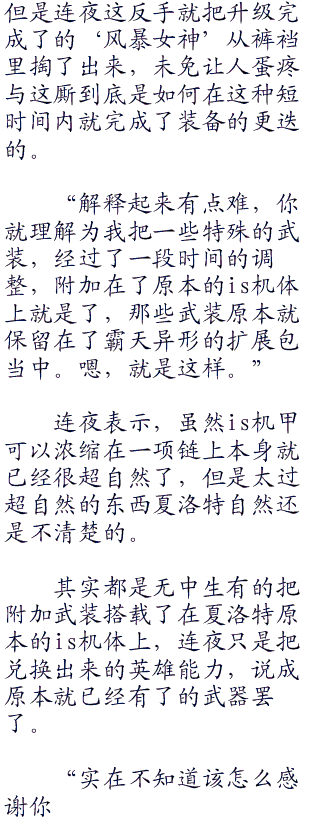 但是连夜这反手就把升级完
成了的‘风暴女神’从裤裆
里掏了出来，未免让人蛋疼
与这厮到底是如何在这种短
时间内就完成了装备的更迭
的。
“解释起来有点难，你
就理解为我把一些特殊的武
装，经过了一段时间的调
整，附加在了原本的is机体
上就是了，那些武装原本就
保留在了霸天异形的扩展包
当中。嗯，就是这样。”
连夜表示，虽然is机甲
可以浓缩在一项链上本身就
已经很超自然了，但是太过
超自然的东西夏洛特自然还
是不清楚的。
其实都是无中生有的把
附加武装搭载了在夏洛特原
本的is机体上，连夜只是把
兑换出来的英雄能力，说成
原本就已经有了的武器罢
了。
“实在不知道该怎么感
谢你